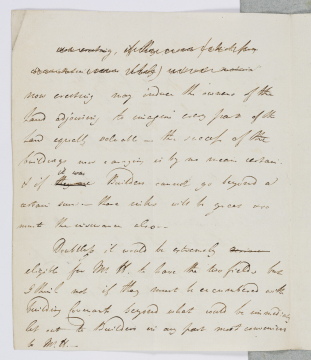 now erecting may induce the owners of the
Land adjoining to imagine every part of the
Land equally valuable — the success of the
buildings now carrying is by no means certain
& if it was Builders cannot go beyond a
certain sum — their risk will be great and
must the insurance also —
Doubtless it would be extremely
eligible for Mr. H. to have the two fields but
I think not if they must be encumbered with
building Covenants beyond what would be
let out to Builders in any part most convenient
to Mr. H —